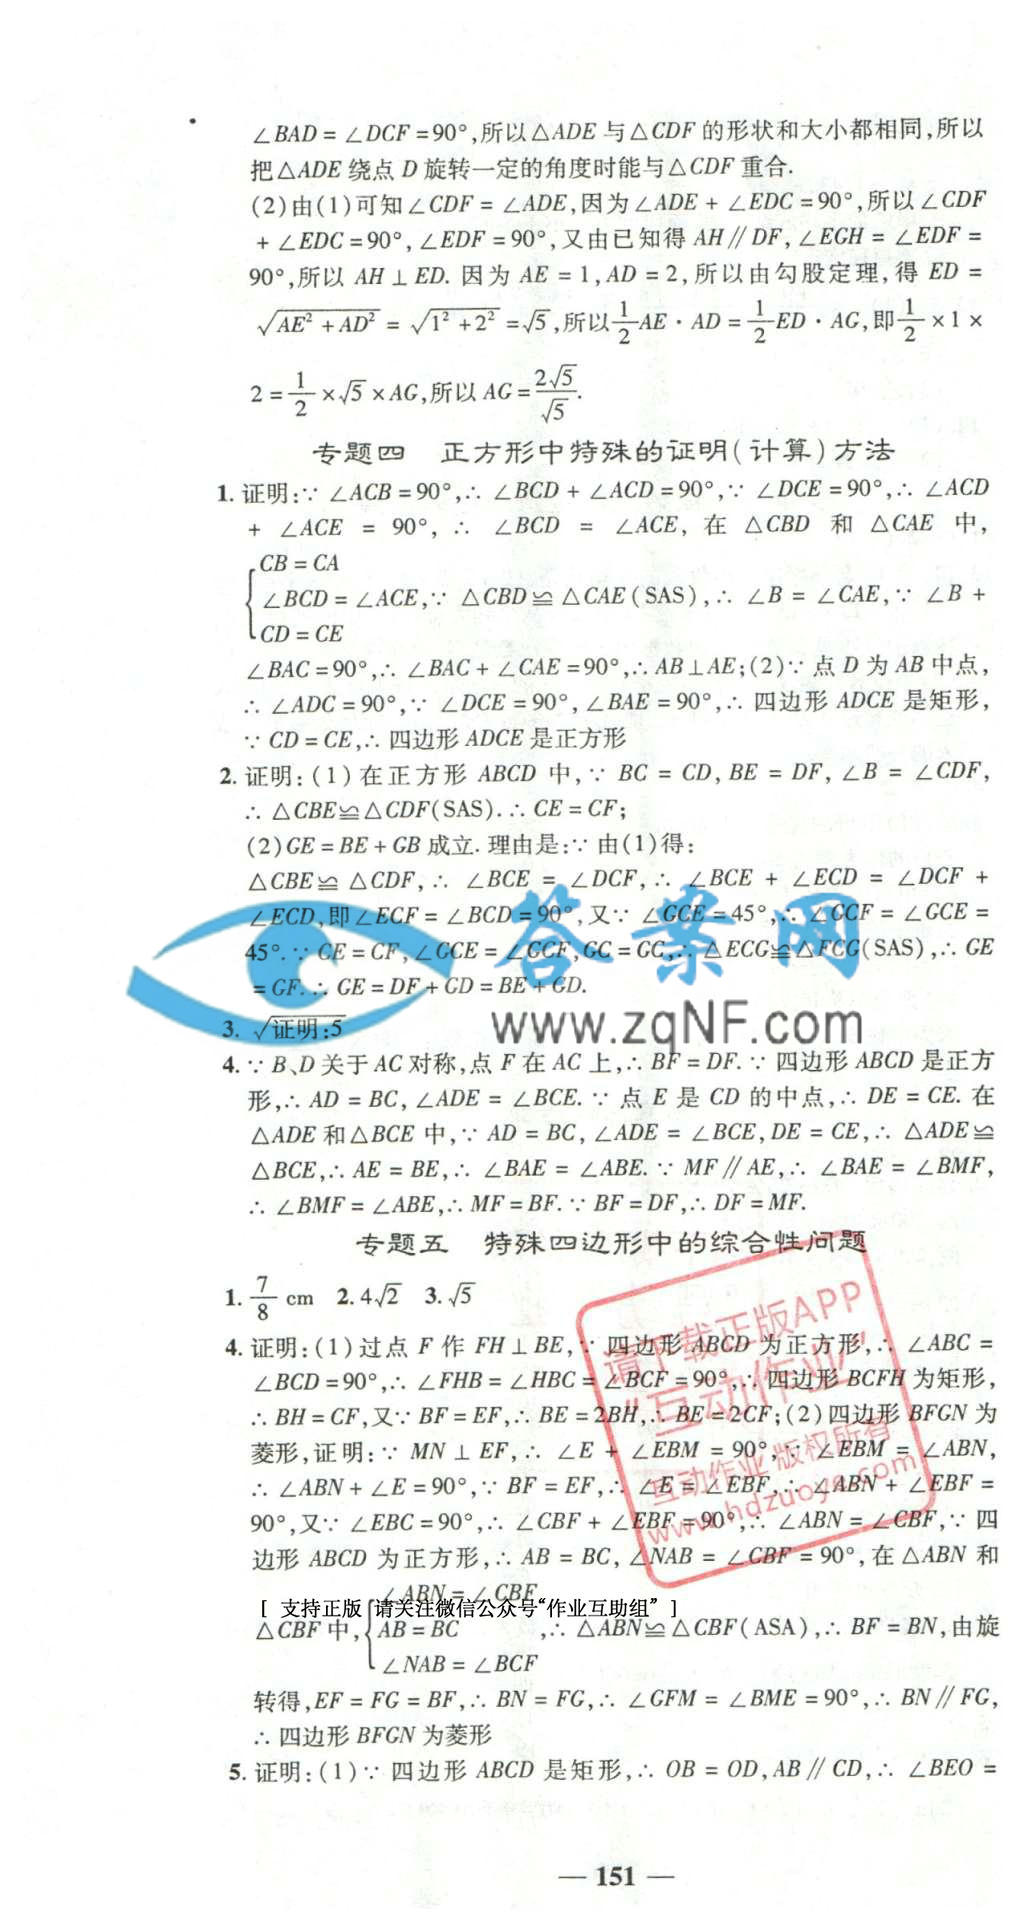 ∠BAD=∠DCF=90°,所以△ADE与△CDF的形状和大小都相同,所以
把△ADE绕点D旋转一定的角度时能与△CDF重合.
(2)由(1)可知∠CDF=∠ADE,因为∠ADE+∠EDC=90°,所以∠CDF
+∠EDC=90°,∠EDF=90°,又由已知得AH∥DF,∠EGH=∠EDF=
90°,所以AH⊥ED.因为AE=1,AD=2,所以由勾股定理,得ED=
√(AE²+AD²)=√(1²+2²)=√5,所以1/2AE·AD=1/2ED·AG,即1/2×1×
2=1/2×√5×AG,所以AG=2√5/√5.
专题四 正方形中特殊的证明(计算)方法
1.证明:∵∠ACB=90°,∴∠BCD+∠ACD=90°,∵∠DCE=90°,∴∠ACD
+∠ACE=90°,∴∠BCD=∠ACE,在△CBD和△CAE中,
CB=CA
∠BCD=∠ACE,∵△CBD≌△CAE(SAS),∴∠B=∠CAE,∵∠B+
CD=CE
∠BAC=90°,∴∠BAC+∠CAE=90°,∴AB⊥AE;(2)∵点D为AB中点,
∴∠ADC=90°,∵∠DCE=90°,∠BAE=90°,∴四边形ADCE是矩形,
∵CD=CE,∴四边形ADCE是正方形
2.证明:(1)在正方形ABCD中,∵BC=CD,BE=DF,∠B=∠CDF,
∴△CBE≌△CDF(SAS).∴CE=CF;
(2)GE=BE+GB成立.理由是:∵由(1)得:
△CBE≌△CDF,∴∠BCE=∠DCF,∴∠BCE+∠ECD=∠DCF+
∠ECD,即∠ECF=∠BCD=90°,又∵∠GCE=45°,∴∠CCF=∠GCE=
45°.∵CE=CF,∠GCE=∠GCF,GC=GC,∴△ECG≌△FCG(SAS),∴GE
=GF.∴GE=DF+GD=BE+GD.
答案网
www.zqNF.com
3.√证明:5
4.∵B、D关于AC对称,点F在AC上,∴BF=DF.∵四边形ABCD是正方
形,∴AD=BC,∠ADE=∠BCE.∵点E是CD的中点,∴DE=CE.在
△ADE和△BCE中,∵AD=BC,∠ADE=∠BCE,DE=CE,∴△ADE≌
△BCE,∴AE=BE,∴∠BAE=∠ABE.∵MF∥AE,∴∠BAE=∠BMF,
∴∠BMF=∠ABE,∴MF=BF.∵BF=DF,∴DF=MF.
专题五 特殊四边形中的综合性问题
1.7/8 cm 2.4√2 3.√5
4.证明:(1)过点F作FH⊥BE,∵四边形ABCD为正方形,∴∠ABC=
∠BCD=90°,∴∠FHB=∠HBC=∠BCF=90°,∴四边形BCFH为矩形,
∴BH=CF,又∵BF=EF,∴BE=2BH,∴BE=2CF;(2)四边形BFGN为
菱形,证明:∵MN⊥EF,∴∠E+∠EBM=90°,∵∠EBM=∠ABN,
∴∠ABN+∠E=90°,∵BF=EF,∴∠E=∠EBF,∴∠ABN+∠EBF=
90°,又∵∠EBC=90°,∴∠CBF+∠EBF=90°,∴∠ABN=∠CBF,∵四
边形ABCD为正方形,∴AB=BC,∠NAB=∠CBF=90°,在△ABN和
∠ABN=∠CBF
△CBF中,AB=BC,∴△ABN≌△CBF(ASA),∴BF=BN,由旋
∠NAB=∠BCF
[ 支持正版 请关注微信公众号“作业互助组” ]
转得,EF=FG=BF,∴BN=FG,∴∠GFM=∠BME=90°,∴BN∥FG,
∴四边形BFGN为菱形
5.证明:(1)∵四边形ABCD是矩形,∴OB=OD,AB∥CD,∴∠BEO=
请下载正版APP
“互动作业”
互动作业 版权所有
www.hdzuoye.com
— 151 —